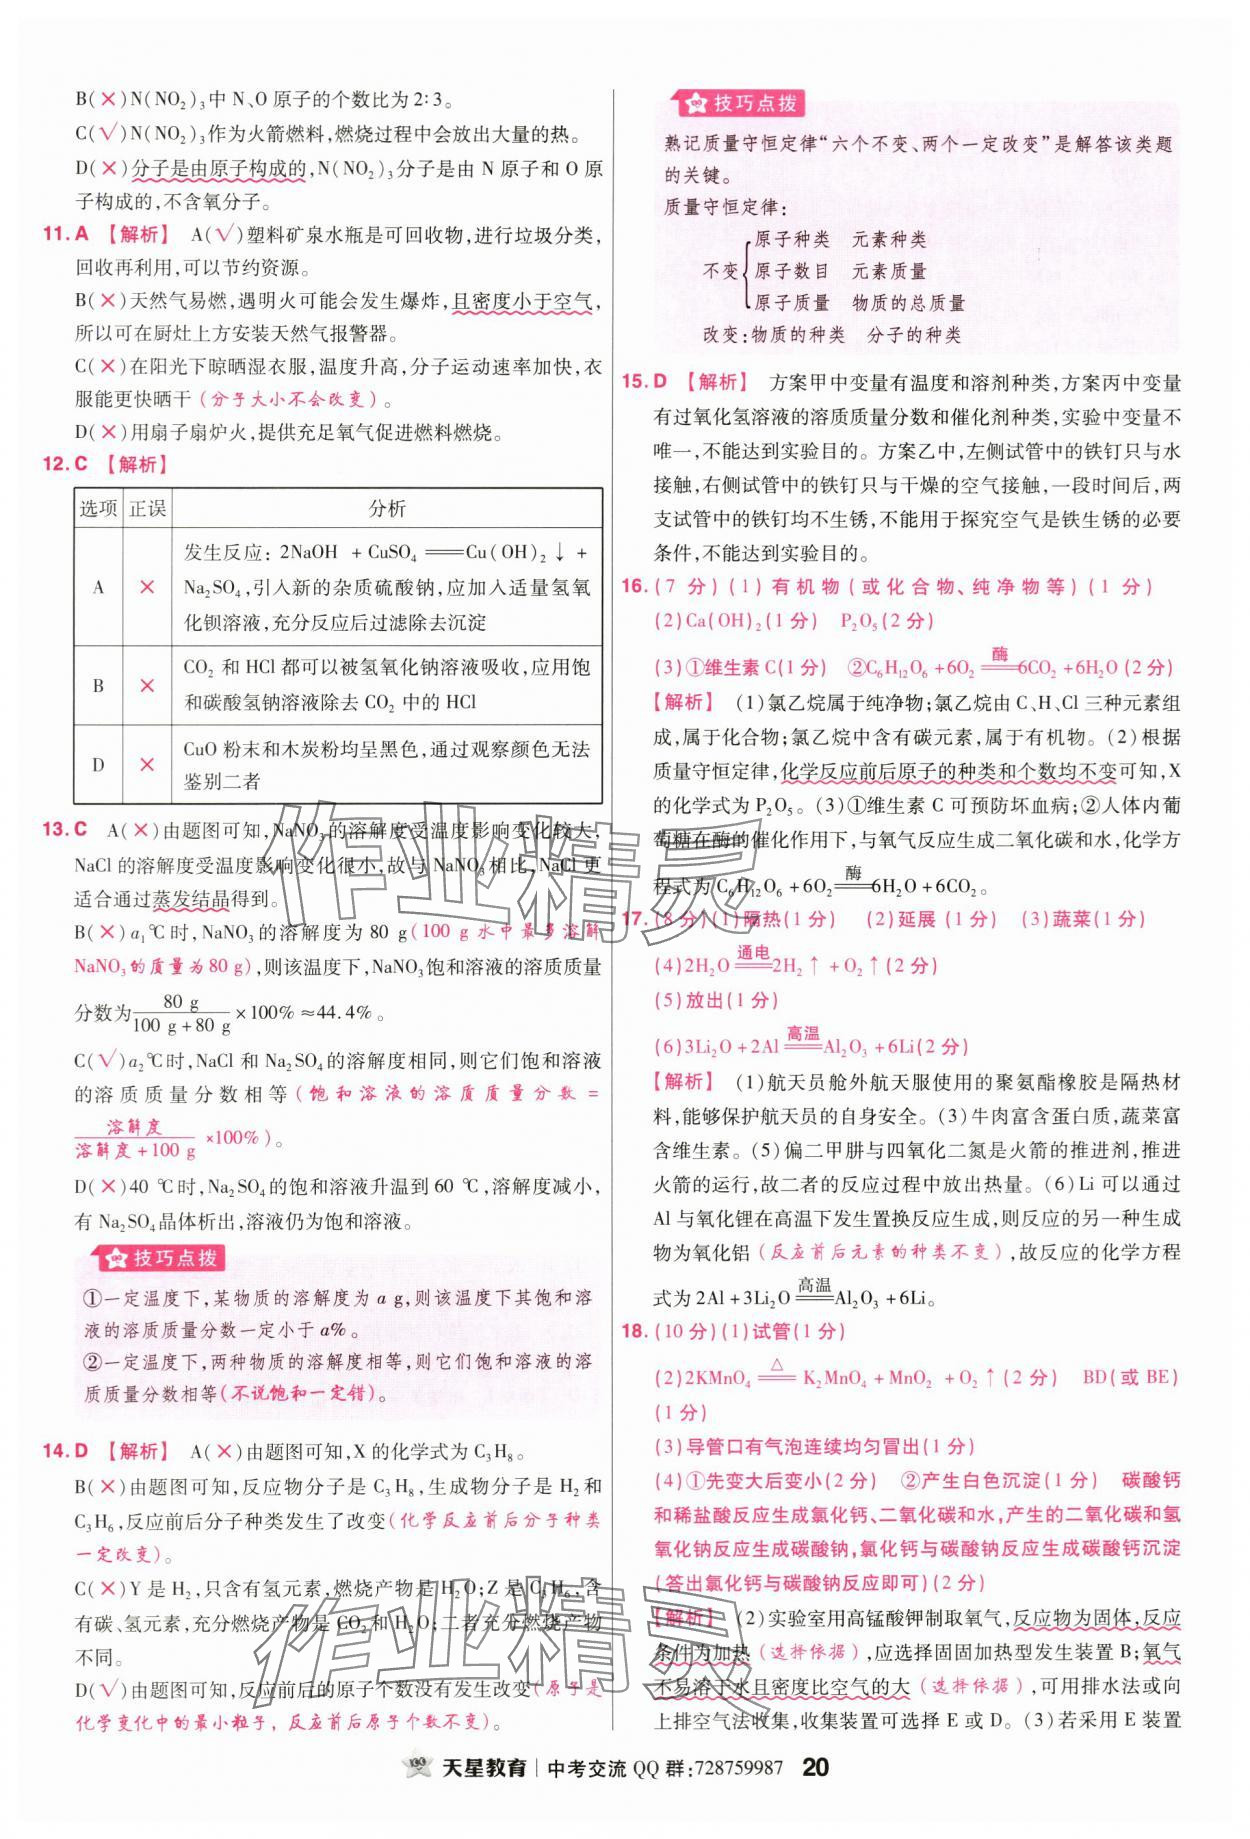 B(×)N(NO₂)₃中 N、O 原子的个数比为 2∶3。
C(√)N(NO₂)₃作为火箭燃料,燃烧过程中会放出大量的热。
D(×)分子是由原子构成的,N(NO₂)₃分子是由 N 原子和 O 原
子构成的,不含氧分子。
11. A 【解析】 A(√)塑料矿泉水瓶是可回收物,进行垃圾分类,
回收再利用,可以节约资源。
B(×)天然气易燃,遇明火可能会发生爆炸,且密度小于空气,
所以可在厨灶上方安装天然气报警器。
C(×)在阳光下晾晒湿衣服,温度升高,分子运动速率加快,衣
服能更快晒干(分子大小不会改变)。
D(×)用扇子扇炉火,提供充足氧气促进燃料燃烧。
12. C 【解析】
选项 正误 分析
A × 发生反应: 2NaOH + CuSO₄ ══ Cu(OH)₂↓ +
Na₂SO₄,引入新的杂质硫酸钠,应加入适量氢氧
化钡溶液,充分反应后过滤除去沉淀
B × CO₂ 和 HCl 都可以被氢氧化钠溶液吸收,应用饱
和碳酸氢钠溶液除去 CO₂ 中的 HCl
D × CuO 粉末和木炭粉均呈黑色,通过观察颜色无法
鉴别二者
13. C A(×)由题图可知,NaNO₃的溶解度受温度影响变化较大,
NaCl 的溶解度受温度影响变化很小,故与 NaNO₃相比,NaCl 更
适合通过蒸发结晶得到。
B(×)a₁℃时,NaNO₃的溶解度为 80 g(100 g 水中最多溶解
NaNO₃的质量为80 g),则该温度下,NaNO₃饱和溶液的溶质质量
分数为 80 g / (100 g+80 g) ×100%≈44.4%。
C(√)a₂℃时,NaCl 和 Na₂SO₄的溶解度相同,则它们饱和溶液
的溶质质量分数相等(饱和溶液的溶质质量分数=
溶解度 / (溶解度+100 g) ×100%)。
D(×)40 ℃时,Na₂SO₄的饱和溶液升温到 60 ℃,溶解度减小,
有 Na₂SO₄晶体析出,溶液仍为饱和溶液。
技巧点拨
①一定温度下,某物质的溶解度为 a g,则该温度下其饱和溶
液的溶质质量分数一定小于 a%。
②一定温度下,两种物质的溶解度相等,则它们饱和溶液的溶
质质量分数相等(不说饱和一定错)。
14. D 【解析】 A(×)由题图可知,X 的化学式为 C₃H₈。
B(×)由题图可知,反应物分子是 C₃H₈,生成物分子是 H₂和
C₃H₆,反应前后分子种类发生了改变(化学反应前后分子种类
一定改变)。
C(×)Y 是 H₂,只含有氢元素,燃烧产物是 H₂O;Z 是 C₃H₆,含
有碳、氢元素,充分燃烧产物是 CO₂和 H₂O;二者充分燃烧产物
不同。
D(√)由题图可知,反应前后的原子个数没有发生改变(原子是
化学变化中的最小粒子,反应前后原子个数不变)。
技巧点拨
熟记质量守恒定律“六个不变、两个一定改变”是解答该类题
的关键。
质量守恒定律:
原子种类 元素种类
不变{原子数目 元素质量
原子质量 物质的总质量
改变:物质的种类 分子的种类
15. D 【解析】 方案甲中变量有温度和溶剂种类,方案丙中变量
有过氧化氢溶液的溶质质量分数和催化剂种类,实验中变量不
唯一,不能达到实验目的。方案乙中,左侧试管中的铁钉只与水
接触,右侧试管中的铁钉只与干燥的空气接触,一段时间后,两
支试管中的铁钉均不生锈,不能用于探究空气是铁生锈的必要
条件,不能达到实验目的。
16. (7 分)(1)有机物(或化合物、纯净物等)(1 分)
(2)Ca(OH)₂(1 分) P₂O₅(2 分)
(3)①维生素 C(1 分) ②C₆H₁₂O₆+6O₂ ══酶══ 6CO₂+6H₂O(2 分)
【解析】 (1)氯乙烷属于纯净物;氯乙烷由 C、H、Cl 三种元素组
成,属于化合物;氯乙烷中含有碳元素,属于有机物。(2)根据
质量守恒定律,化学反应前后原子的种类和个数均不变可知,X
的化学式为 P₂O₅。(3)①维生素 C 可预防坏血病;②人体内葡
萄糖在酶的催化作用下,与氧气反应生成二氧化碳和水,化学方
程式为C₆H₁₂O₆+6O₂ ══酶══ 6H₂O+6CO₂。
17. (8 分)(1)隔热(1 分) (2)延展(1 分) (3)蔬菜(1 分)
(4)2H₂O ══通电══ 2H₂↑+O₂↑(2 分)
(5)放出(1 分)
(6)3Li₂O+2Al ══高温══ Al₂O₃+6Li(2 分)
【解析】 (1)航天员舱外航天服使用的聚氨酯橡胶是隔热材
料,能够保护航天员的自身安全。(3)牛肉富含蛋白质,蔬菜富
含维生素。(5)偏二甲肼与四氧化二氮是火箭的推进剂,推进
火箭的运行,故二者的反应过程中放出热量。(6)Li 可以通过
Al 与氧化锂在高温下发生置换反应生成,则反应的另一种生成
物为氧化铝(反应前后元素的种类不变),故反应的化学方程
式为 2Al+3Li₂O ══高温══ Al₂O₃+6Li。
18. (10 分)(1)试管(1 分)
(2)2KMnO₄ ══△══ K₂MnO₄+MnO₂+O₂↑(2 分) BD(或 BE)
(1 分)
(3)导管口有气泡连续均匀冒出(1 分)
(4)①先变大后变小(2 分) ②产生白色沉淀(1 分) 碳酸钙
和稀盐酸反应生成氯化钙、二氧化碳和水,产生的二氧化碳和氢
氧化钠反应生成碳酸钠,氯化钙与碳酸钠反应生成碳酸钙沉淀
(答出氯化钙与碳酸钠反应即可)(2 分)
【解析】 (2)实验室用高锰酸钾制取氧气,反应物为固体,反应
条件为加热(选择依据),应选择固固加热型发生装置 B;氧气
不易溶于水且密度比空气的大(选择依据),可用排水法或向
上排空气法收集,收集装置可选择 E 或 D。(3)若采用 E 装置
作业精灵
作业精灵
天星教育 | 中考交流 QQ 群:728759987 20